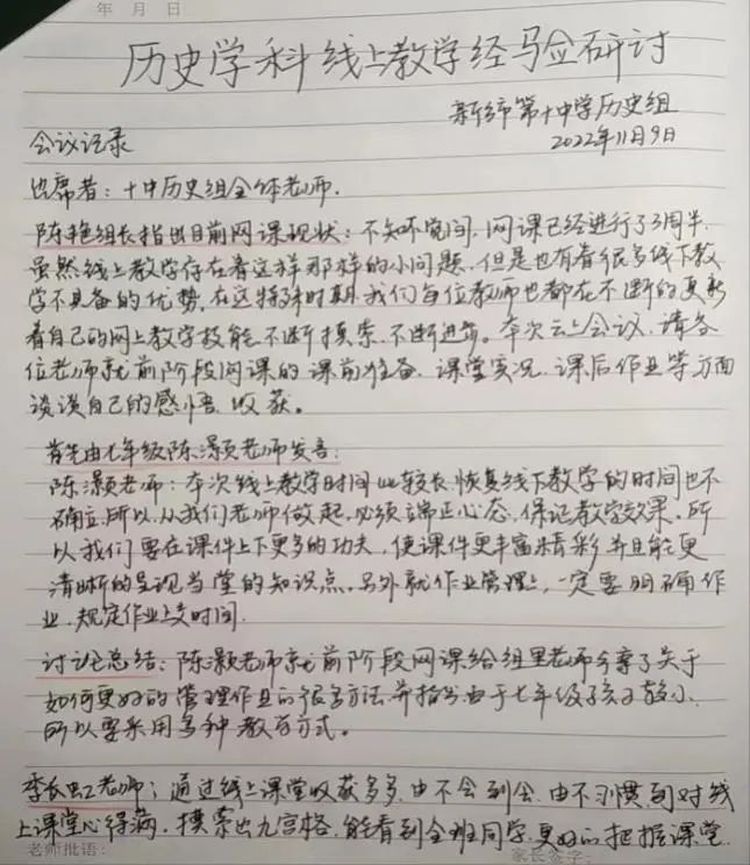 年 月 日
历史学科线上教学经验研讨
新乡市第十中学历史组
会议记录 2022年11月9日
出席者：十中历史组全体老师.
陈艳组长指出目前网课现状：不知不觉间，网课已经进行了3周半，
虽然线上教学存在着这样那样的小问题，但是也有着很多线下教
学不具备的优势，在这特殊时期，我们每位教师也都在不断的更新
着自己的网上教学技能，不断摸索，不断进步。本次云上会议，请各
位老师就前阶段网课的课前准备、课堂实况、课后作业等方面
谈谈自己的感悟、收获。
首先由七年级陈灏颖老师发言：
陈灏颖老师：本次线上教学时间比较长，恢复线下教学的时间也不
确立，所以，从我们老师做起，必须端正心态，保记教学效果。所
以我们要在课件上下更多的功夫，使课件更丰富精彩，并且能更
清晰的呈现当堂的知识点。另外就作业管理上，一定要明确作
业，规定作业上交时间.
讨论总结：陈灏颖老师就前阶段网课给组里老师分享了关于
如何更好的管理作业的很多方法，并指出由于七年级孩子较小，
所以要采用多种教育方式。
李长虹老师：通过线上课堂收获多多，由不会到会，由不习惯到对线
上课堂心得满，摸索出九宫格，能看到全班同学，更好的把握课堂
老师批语： 家长签字：